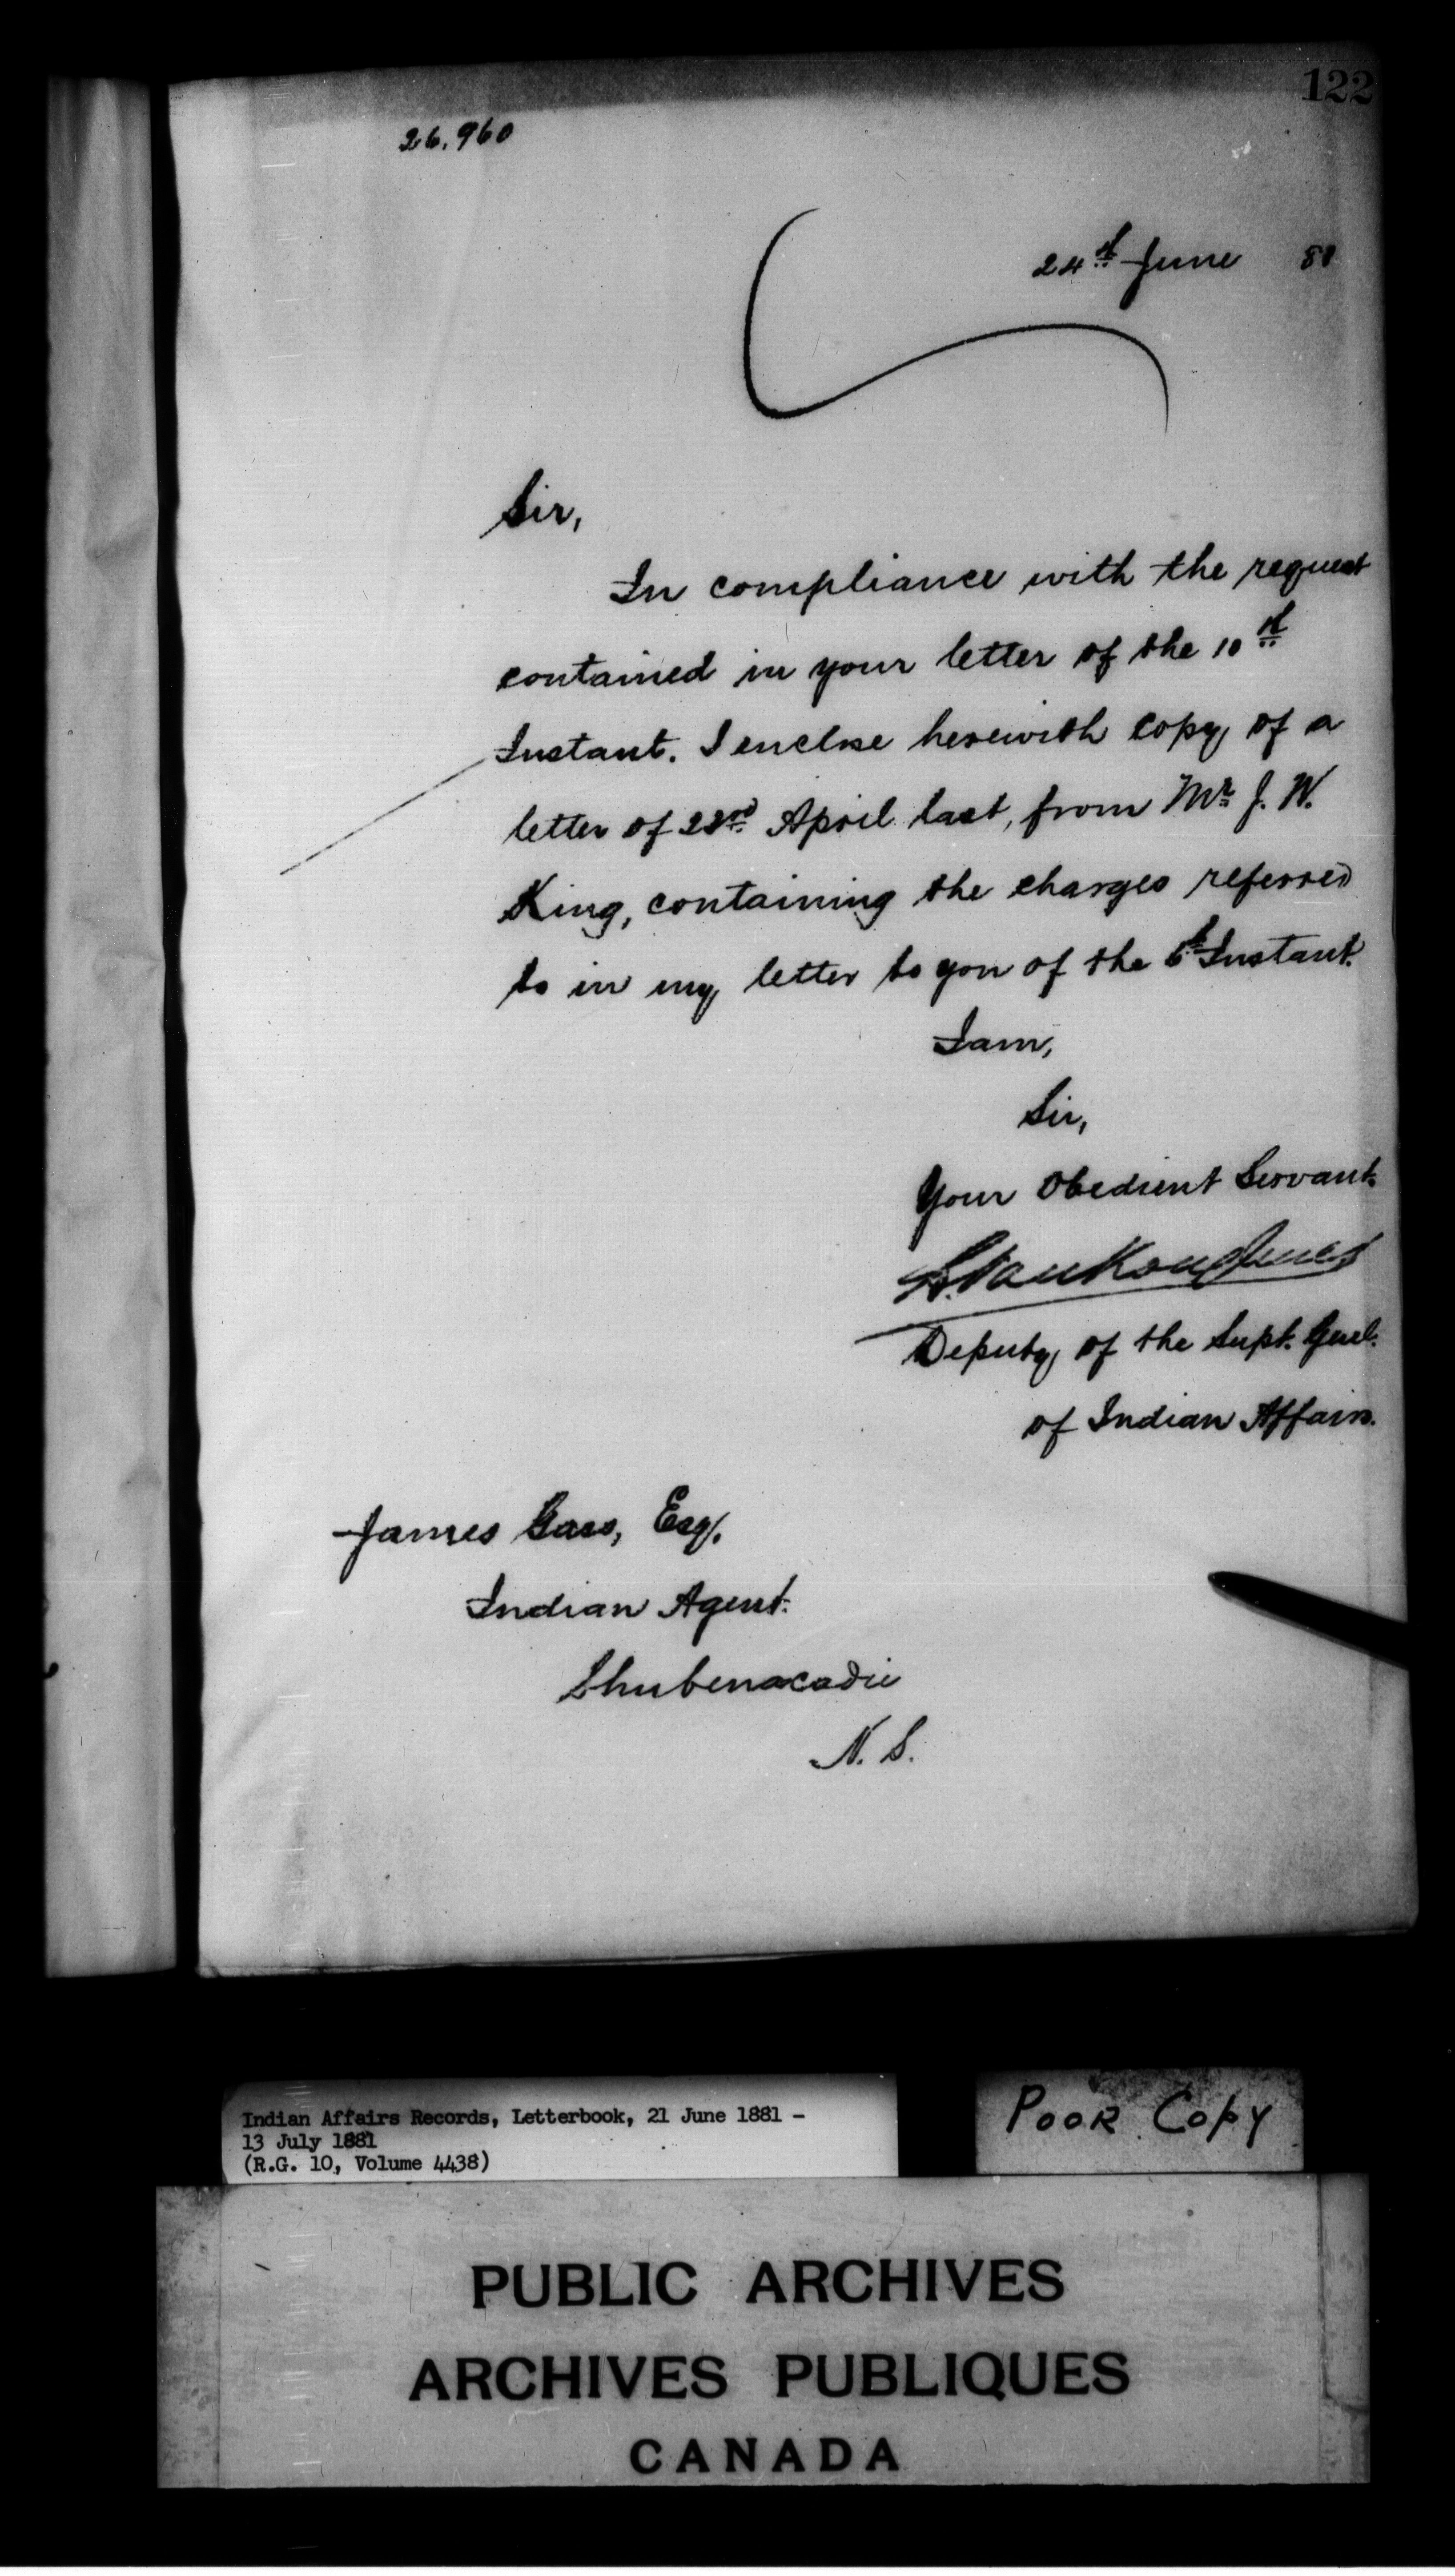 122
26,960
24th June 81
Sir,
In compliance with the request
contained in your letter of the 10th
Instant. I enclose herewith copy of a
letter of 22nd April last, from Mr J. W.
King, containing the charges referred
to in my letter to you of the 6th Instant.
I am,
Sir,
Your Obedient Servant.
L. Vankoughnet
Deputy of the Supt. Genl.
of Indian Affairs.
James Gass, Esq.
Indian Agent.
Shubenacadie
N. S.
Indian Affairs Records, Letterbook, 21 June 1881 –
13 July 1881
(R.G. 10, Volume 4438)
POOR Copy
PUBLIC ARCHIVES
ARCHIVES PUBLIQUES
CANADA